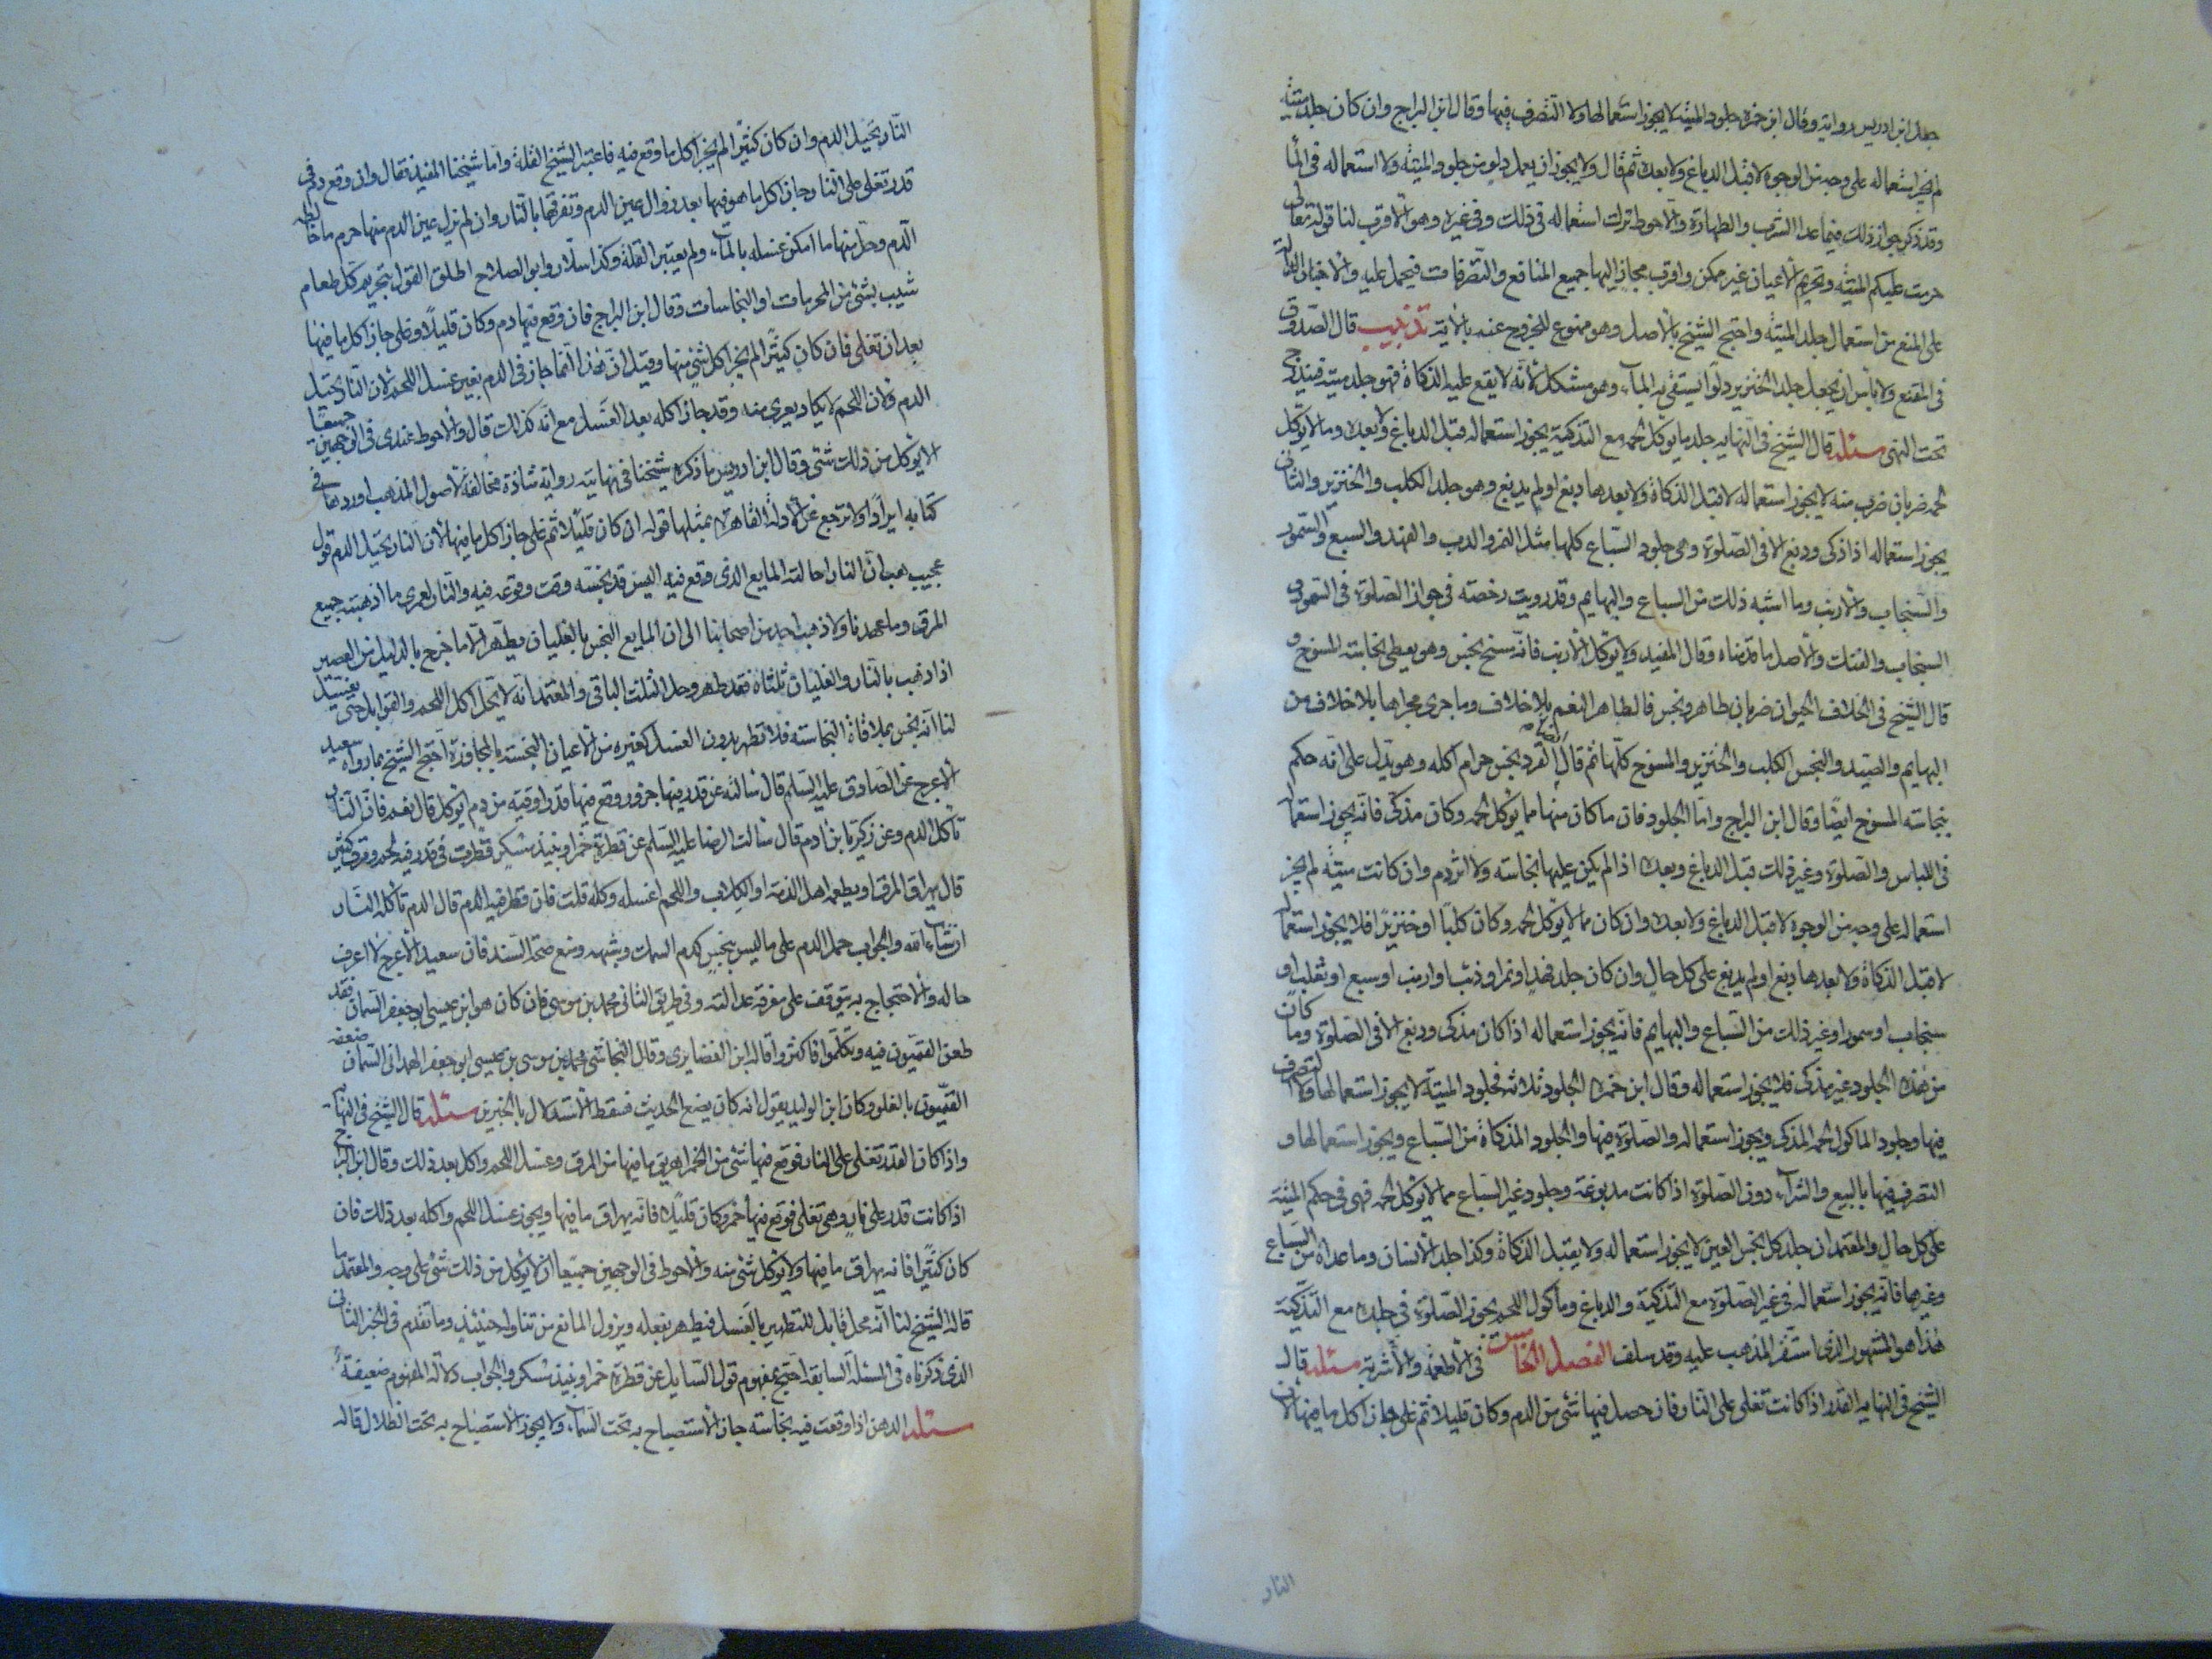 جعل ابن ادريس رواية وقال ابن حمزة جلود الميتة لا يجوز استعمالها ولا التصرف فيها وقال ابن البراج وان كان جلد ميتة
لم يجز استعماله على وجه من الوجوه لا قبل الدباغ ولا بعده ثم قال ولا يجوز ان يعمل دلو من جلود الميتة ولا استعماله في الما
وقد ذكر جواز ذلك فيما عدا الشرب والطهارة والاحوط ترك استعماله في ذلك وفي غيره وهو الاقرب لنا قوله تعالى
حرمت عليكم الميتة وتحريم الاعيان غير ممكن واقرب مجاز اليها جميع المنافع والتصرفات فيحمل عليه والاخبار الدالة
على المنع من استعمال جلد الميتة واحتج الشيخ بالاصل وهو ممنوع للخروج عنه بالاية تذنيب قال الصدوق
في المقنع ولا باس ان يجعل جلد الخنزير دلوا يستقى به الماء وهو مشكل لانه لا يقع عليه الذكاة فهو جلد ميتة فيندرج
تحت النهى مسئله قال الشيخ في النهايه جلد ما يوكل لحمه مع التذكية يجوز استعماله قبل الدباغ وبعده وما لا يوكل
لحمه ضربان ضرب منه لا يجوز استعماله لا قبل الذكاة ولا بعدها دبغ او لم يدبغ وهو جلد الكلب والخنزير والثاني
يجوز استعماله اذا ذكى ودبغ الا في الصلوة وهي جلود السباع كلها مثل النمر والدب والفهد والسبع والسمور
والسنجاب والارنب وما اشبه ذلك من السباع والبهايم وقد رويت رخصته في جواز الصلوة في السمور و
السنجاب والفنك والاصل ما قدمناه وقال المفيد ولا يوكل الارنب فانه مسخ نجس وهو يعطى نجاسة المسوخ و
قال الشيخ في الخلاف الحيوان ضربان طاهر ونجس فالطاهر النعم بلا خلاف وما جرى مجراها بلا خلاف من
البهايم والصيد والنجس الكلب والخنزير والمسوخ كلها ثم قال القرد نجس حرام اكله وهو يدل على انه حكم
بنجاسة المسوخ ايضا وقال ابن البراج واما الجلود فان ما كان منها مما يوكل لحمه وكان مذكى فانه يجوز استعماله
في اللباس والصلوة وغير ذلك قبل الدباغ وبعده اذا لم يكن عليها نجاسة ولا اثر دم وان كانت ميتة لم يجز
استعماله على وجه من الوجوه لا قبل الدباغ ولا بعده وان كان مما لا يوكل لحمه وكان كلبا او خنزيرا فلا يجوز استعماله
لا قبل الذكاة ولا بعدها دبغ او لم يدبغ على كل حال وان كان جلد فهد او نمر او ذئب او ارنب او سبع او ثعلب او
سنجاب او سمور او غير ذلك من السباع والبهايم فانه يجوز استعماله اذا كان مذكى ودبغ الا في الصلوة وما كان
من هذه الجلود غير مذكى فلا يجوز استعماله وقال ابن حمزه الجلود ثلاثه فجلود الميتة لا يجوز استعمالها ولا التصرف
فيها وجلود الماكول لحمه المذكى ويجوز استعماله والصلوة فيها والجلود المذكاة من السباع ويجوز استعمالها و
التصرف فيها بالبيع والشراء دون الصلوة اذا كانت مدبوغة وجلود غير السباع مما لا يوكل لحمه فهى في حكم الميتة
على كل حال والمعتمد ان جلد كل نجس العين لا يجوز استعماله ولا يقبل الذكاة وكذا جلد الانسان وما عداه من السباع
وغيرها فانه يجوز استعماله في غير الصلوة مع التذكية والدباغ وماكول اللحم يجوز الصلوة في جلده مع التذكية
هذا هو المشهور الذى استقر المذهب عليه وقد سلف الفصل الخامس في الاطعمة والاشربة مسئله قال
الشيخ في النهاية القدر اذا كانت تغلى على النار فان حصل فيها شئ من الدم وكان قليلا ثم غلى جاز اكل ما فيها لان
النار
النار تحيل الدم وان كان كثيرا لم يجز اكل ما وقع فيه فاعتبر الشيخ القلة واما شيخنا المفيد فقال وان وقع دم في
قدر تغلى على النار جاز اكل ما هو فيها بعد زوال عين الدم وتفرقها بالنار وان لم يزل عين الدم منها حرم ما خالطه
الدم وحل منها ما امكن غسله بالماء ولم يعتبر القلة وكذا سلار وابو الصلاح اطلق القول بتحريم كل طعام
شيب بشئ من المحرمات او النجاسات وقال ابن البراج فان وقع فيها دم وكان قليلا وغلى جاز اكل ما فيها
بعد ان تغلى فان كان كثيرا لم يجز اكل شئ منها وقيل ان هذا انما جاز في الدم بغير غسل اللحم لان النار تحيل
الدم ولان اللحم لا يكاد يعرى منه وقد جاز اكله بعد الغسل مع انه كذلك قال والاحوط عندى في الوجهين جميعا
الا يوكل من ذلك شئ وقال ابن ادريس ما ذكره شيخنا في نهايته رواية شاذة مخالفة لاصول المذهب اوردها في
كتابه ايرادا ولا ترجع عن الادلة القاهرة بمثلها قوله ان كان قليلا ثم غلى جاز اكل ما فيها لان النار تحيل الدم قول
عجيب هب ان النار احالت المايع الذى وقع فيه اليس قد نجسته وقت وقوعه فيه والنار لعمرى ما اذهبت جميع
المرق وما عهدنا ولا ذهب احد من اصحابنا الى ان المايع النجس بالغليان يطهر الا ما خرج بالدليل من العصير
اذا ذهب بالنار والغليان ثلثاه فقد طهر وحل الثلث الباقى والمعتمد انه لا يحل اكل اللحم والتوابل حتى يغتسل
لنا انه نجس بملاقاة النجاسة فلا تطهر بدون الغسل كغيره من الاعيان النجسة بالمجاورة احتج الشيخ بما رواه سعيد
الاعرج عن الصادق عليه السلم قال سالته عن قدر فيها جزور وقع فيها قدر اوقية من دم ايوكل قال نعم فان النار
تاكل الدم وعن زكريا بن ادم قال سالت الرضا عليه السلم عن قطرة خمر او نبيذ مسكر قطرت في قدر فيه لحم ومرق كثير
قال يهراق المرق او يطعمه اهل الذمة او الكلاب واللحم اغسله وكله قلت فان قطر فيه الدم قال الدم تاكله النار
ان شاء الله والجواب حمل الدم على ما ليس بنجس كدم السمك وشبهه ومنع صحة السند فان سعيد الاعرج لا اعرف
حاله والاحتجاج به يتوقف على معرفة عدالته وفي طريق الثانى محمد بن موسى فان كان هو ابن عيسى ابو جعفر السمان فقد
طعن القميون فيه وتكلموا فاكثروا قاله ابن الغضايرى وقال النجاشى محمد بن موسى بن عيسى ابو جعفر الهمدانى السمان ضعفه
القميون بالغلو وكان ابن الوليد يقول انه كان يضع الحديث فسقط الاستدلال بالخبرين مسئله قال الشيخ في النهاية
واذا كان القدر تغلى على النار فوقع فيها شئ من الخمر اهريق ما فيها من المرق وغسل اللحم واكل بعد ذلك وقال ابن البراج
اذا كانت قدر على نار وهى تغلى فوقع فيها خمر وكان قليلا فانه يهراق ما فيها ويجوز غسل اللحم واكله بعد ذلك فان
كان كثيرا فانه يهراق ما فيها ولا يوكل شئ منه والاحوط في الوجهين جميعا ان لا يوكل من ذلك شئ على وجه والمعتمد ما
قاله الشيخ لنا انه محل قابل للتطهير بالغسل فيطهر بفعله ويزول المانع من تناوله حينئذ وما تقدم في الخبر الثانى
الذى ذكرناه في المسئلة السابقة احتج بمفهوم قول السايل عن قطرة خمر او نبيذ مسكر والجواب دلالة المفهوم ضعيفة
مسئله الدهن اذا وقعت فيه نجاسة جاز الاستصباح به تحت السماء ولا يجوز الاستصباح به تحت الظلال قاله